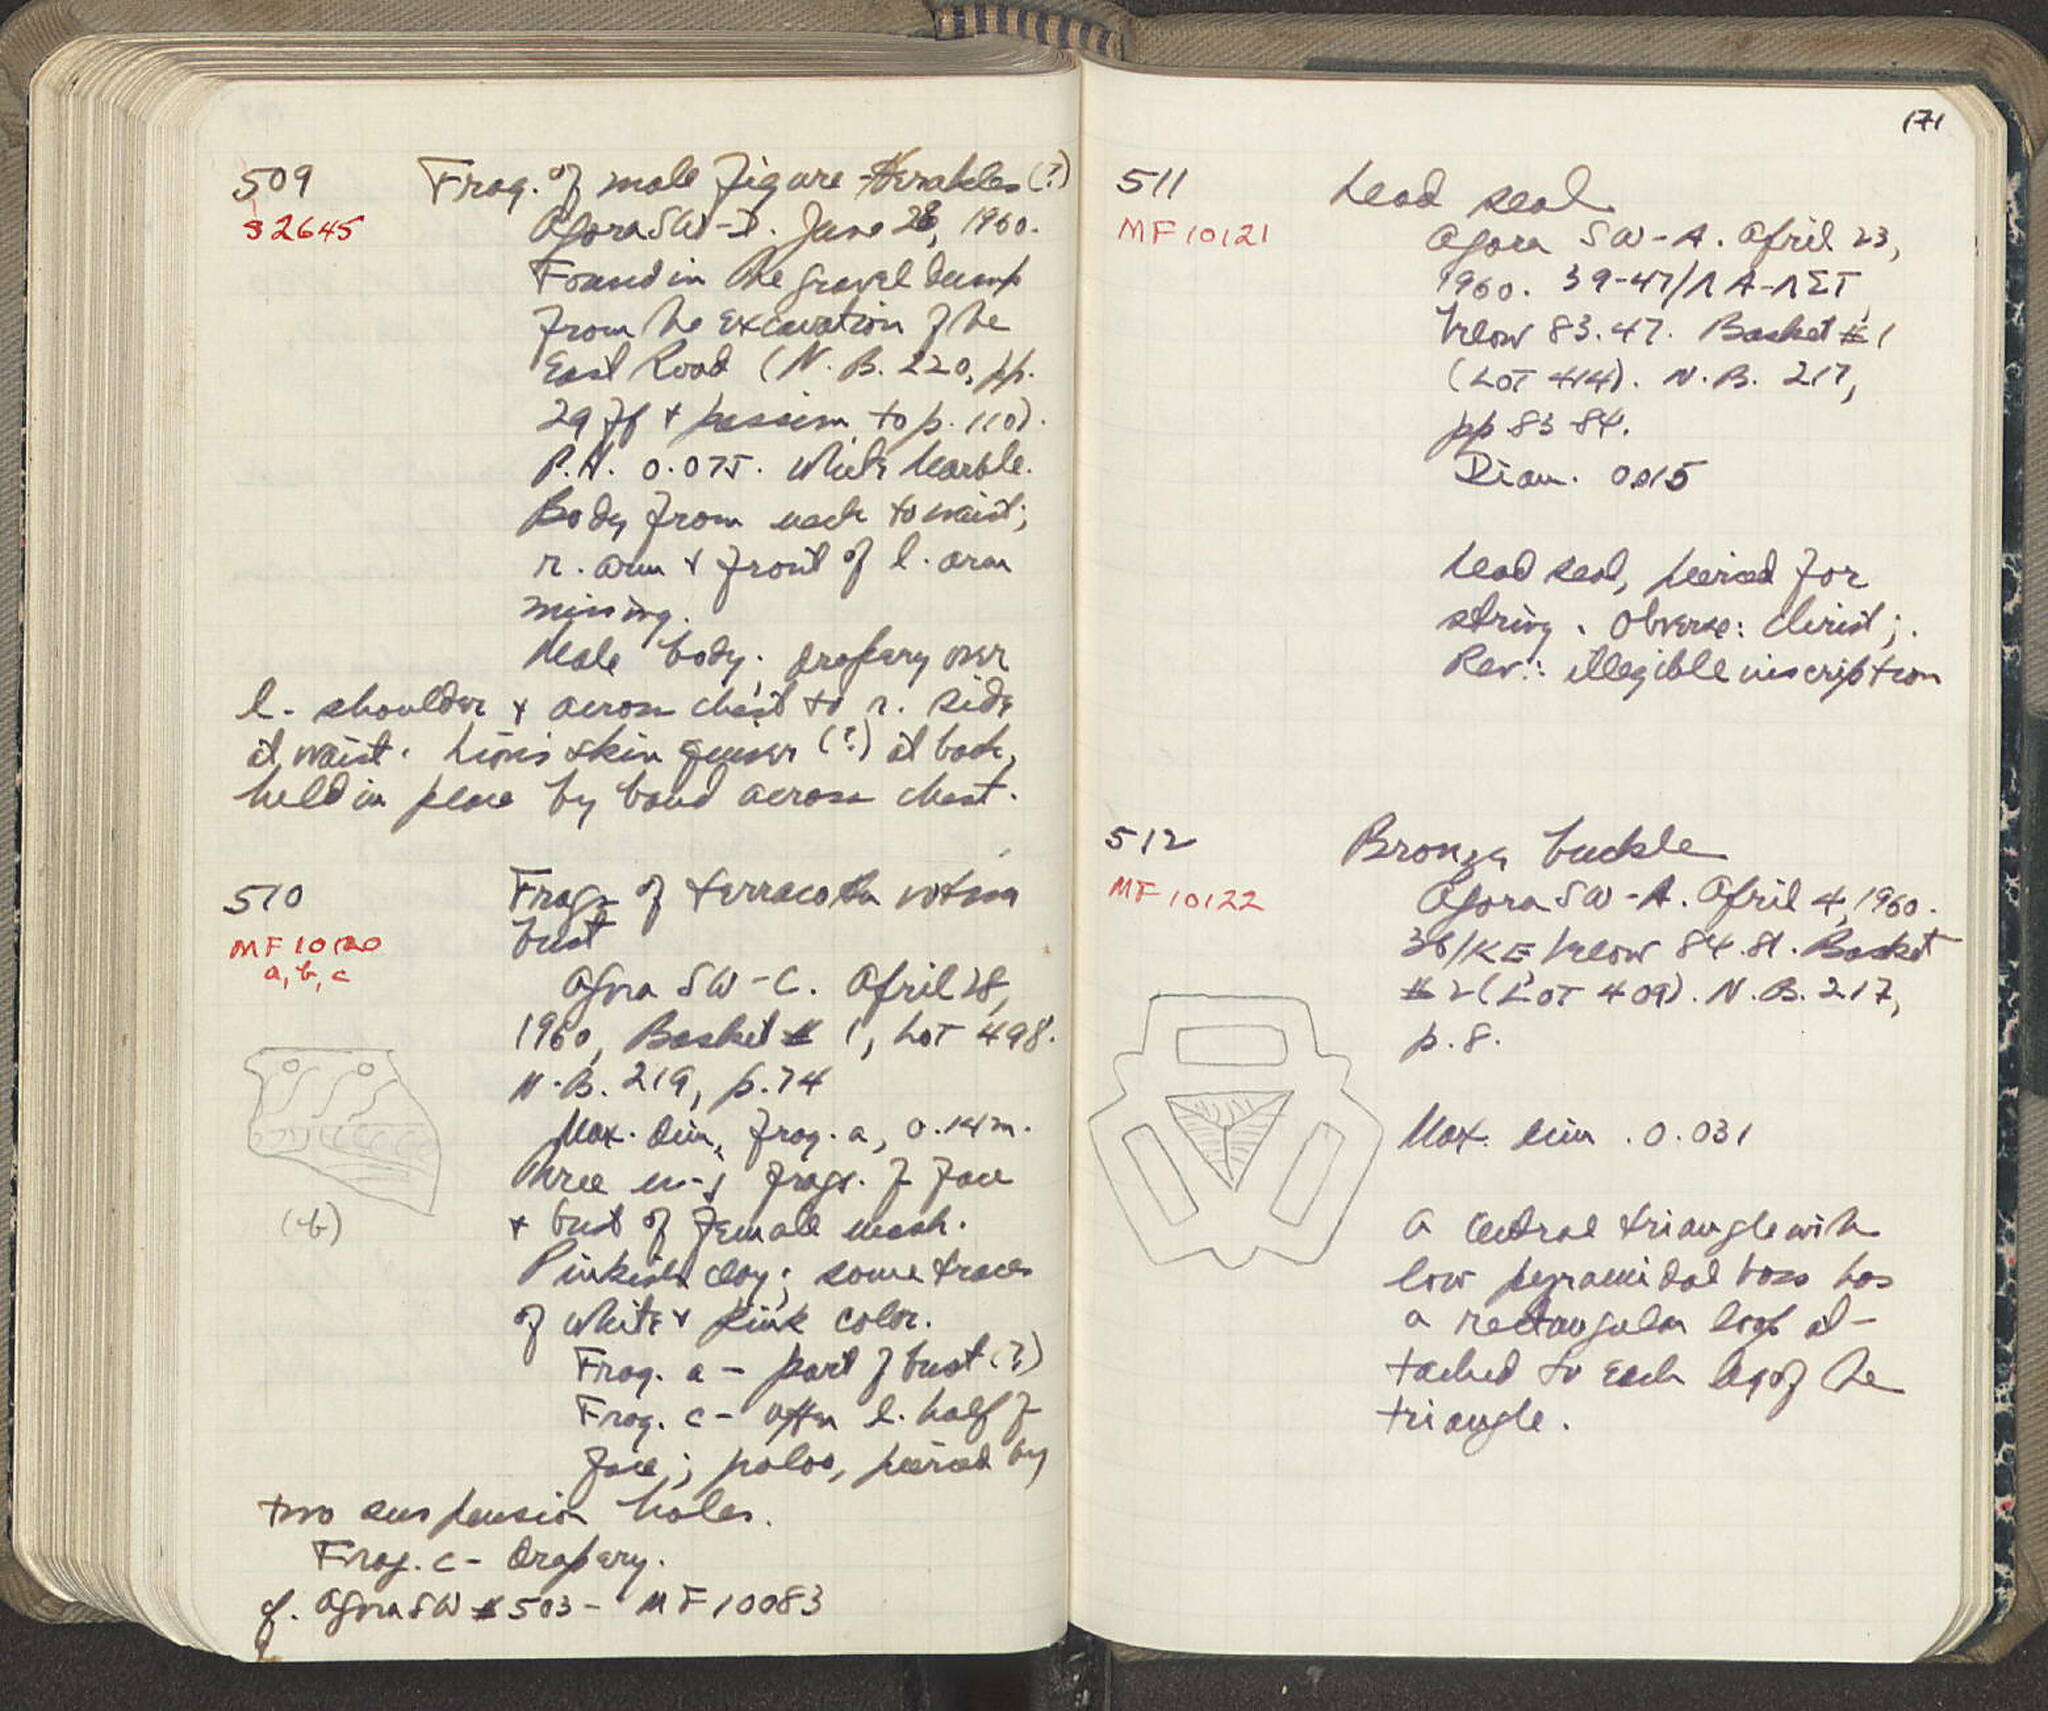 509 Frag. of male figure - Herakles (?)
S2645 Agora SW-D. June 28, 1960.
Found in the gravel dump
from the excavation of the
East Road (N.B. 220, pp.
29 ff + passim to p. 110).
P.H. 0.075. White Marble.
Body from neck to waist;
r. arm + front of l. arm
missing.
Male body; drapery over
l. shoulder + across chest to r. side
at waist. Lion's skin (?) at back,
held in place by band across chest.
510 Frags of terracotta votive
bust
MF 10120
a, b, c
Agora SW-C. April 28,
1960, Basket # 1, Lot 498.
N.B. 219, p. 74
Max. dim, frag. a, 0.14 m.
Three n-j frags. of face
+ bust of female mask.
Pinkish clay; some traces
of white + pink color.
(b)
Frag. a - part of bust (?)
Frag. c - upper l. half of
face; polos, pierced by
two suspension holes.
Frag. c - Drapery.
cf. Agora SW # 503 - MF 10083
171
511 Lead seal
MF 10121
Agora SW-A. April 23,
1960. 39-47/ΛA-ΛΣΤ,
below 83.47. Basket #1
(Lot 414). N.B. 217,
pp 83-84.
Diam. 0.015
Lead seal, pierced for
string. Obverse: Christ;
Rev.: illegible inscription
512 Bronze buckle
MF 10122
Agora SW-A. April 4, 1960.
36/KE, below 84.81. Basket
#2 (Lot 409). N.B. 217,
p. 8.
Max. dim. 0.031
A central triangle with
low pyramidal boss has
a rectangular loop at-
tached to each leg of the
triangle.